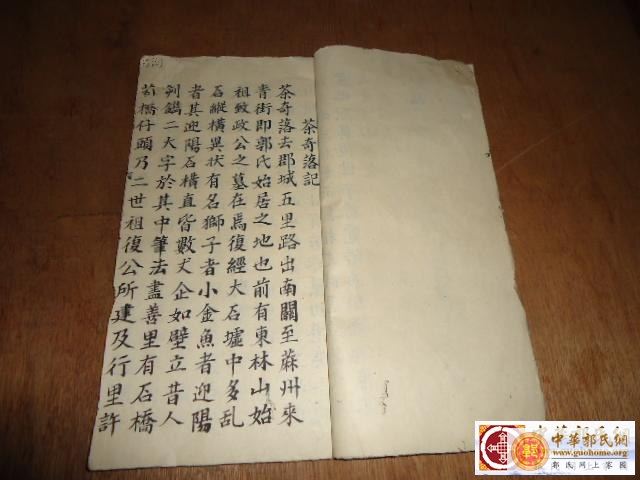 茶奇落記
茶奇落去郡城五里路出南關至蔴州來
青街即郭氏始居之地也前有東林山始
祖致政公之墓在焉復經大石墟中多乱
石縱橫異狀有名獅子者小金魚者迎陽
者其迎陽石橫直皆數丈企如壁立昔人
刋鐫二大字於其中筆法盡善里有石橋
橋仔頭乃二世祖復公所建及行里許
中華郭氏網
www.guohome.org
郭氏網上家園